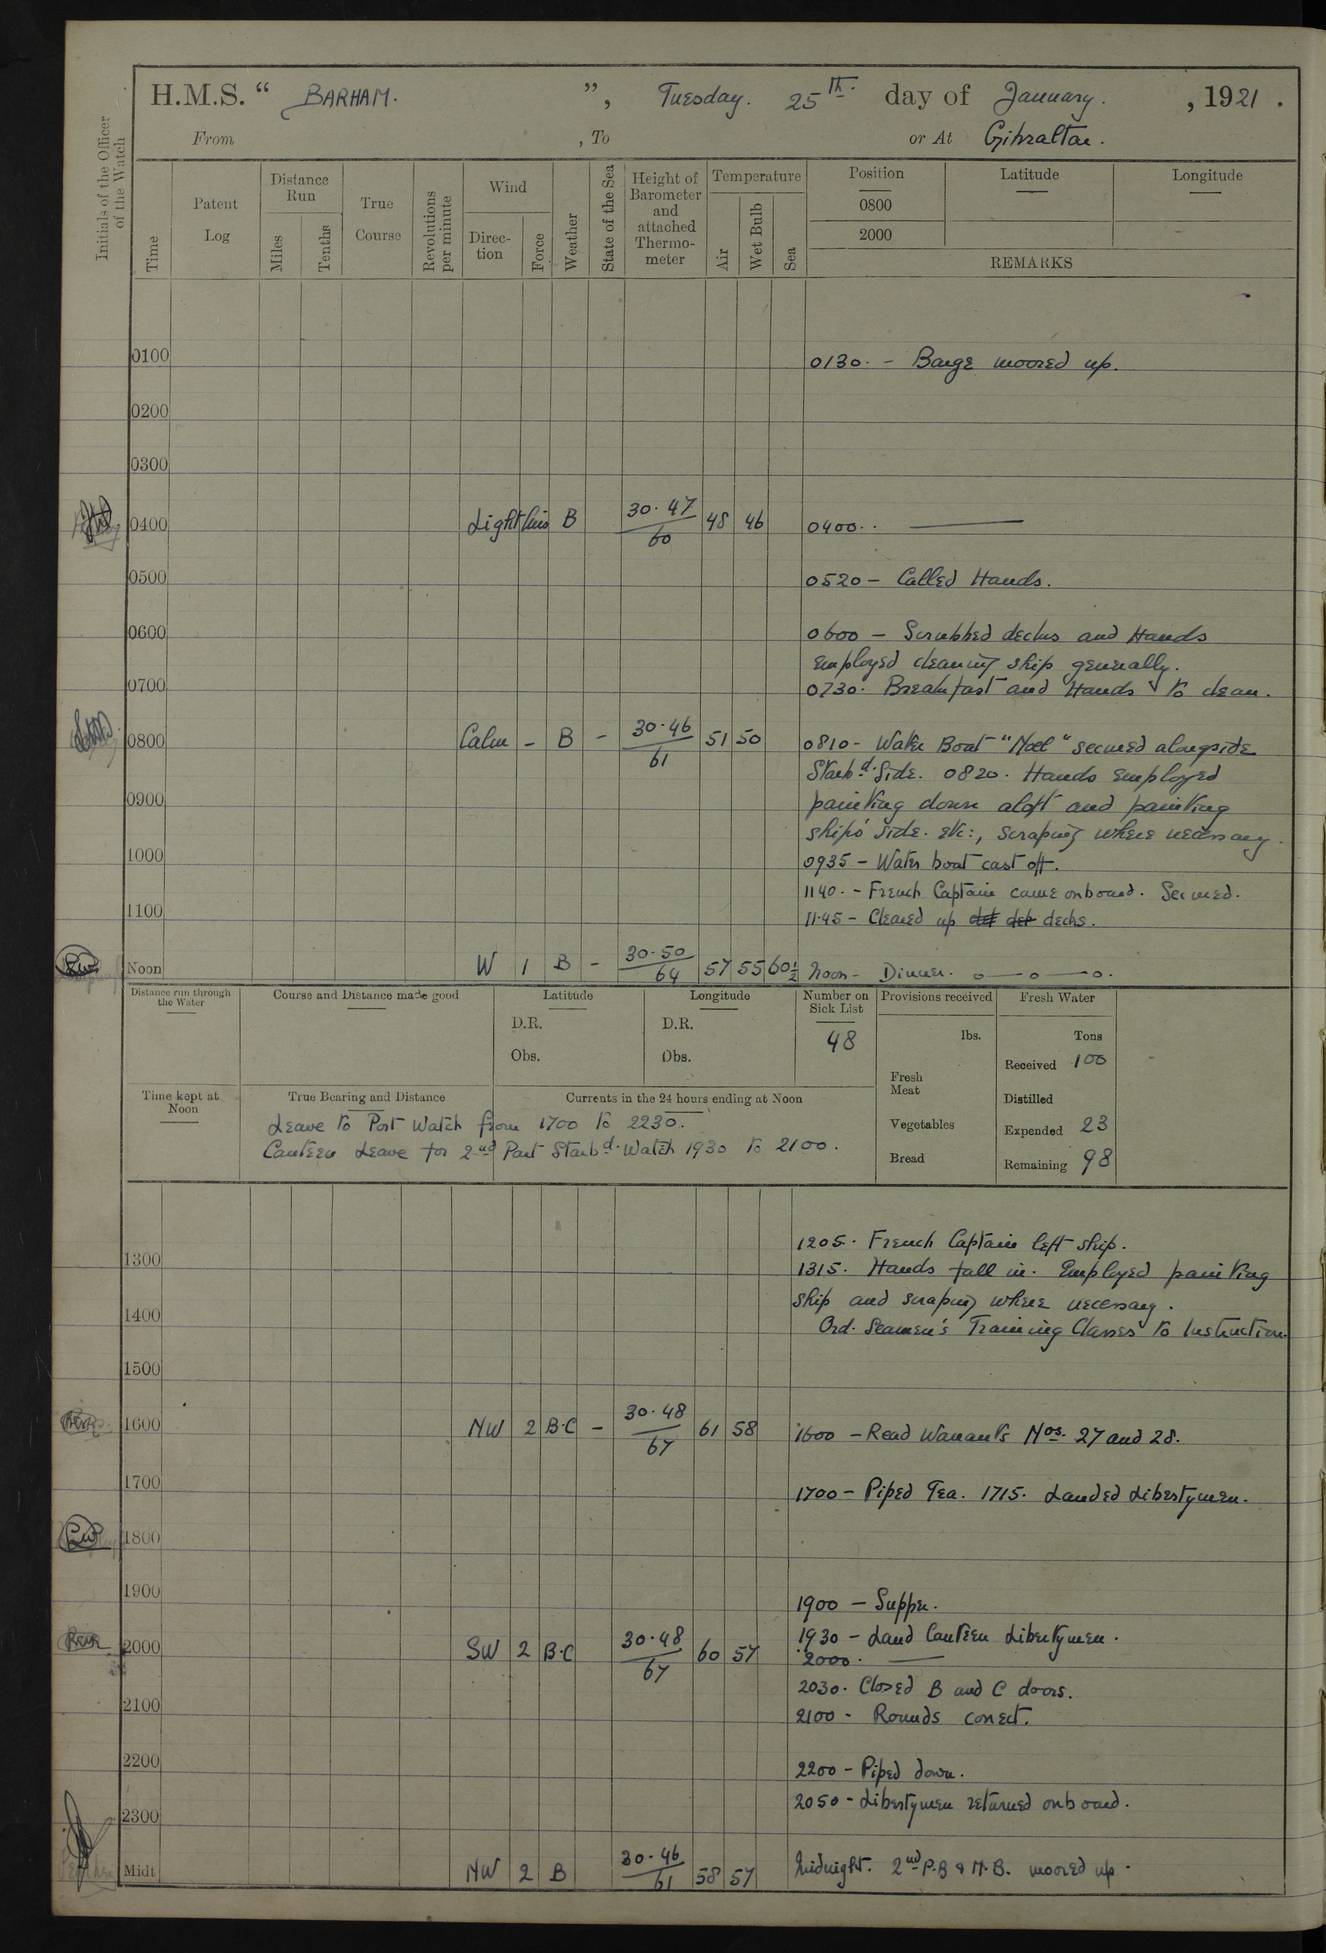 H.M.S. “ BARHAM. ”, Tuesday. 25th. day of January. , 1921 .
From , To or At Gibraltar.
Initials of the Officer of the Watch
Time
Patent Log
Distance Run
Miles
Tenths
True Course
Revolutions per minute
Wind
Direc-tion
Force
Weather
State of the Sea
Height of Barometer and attached Thermo-meter
Temperature
Air
Wet Bulb
Sea
Position
0800
2000
Latitude
Longitude
REMARKS
0100 0130. - Barge moored up.
0200
0300
0400 Light Airs B 30.47 / 60 48 46 0400.. ———
0500 0520 - Called Hands.
0600 0600 - Scrubbed decks and Hands
employed cleaning ship generally.
0700 0730. Breakfast and Hands to clean.
0800 Calm - B - 30.46 / 61 51 50 0810 - Water Boat "Noel" secured alongside
Starbd. Side. 0820. Hands employed
0900 painting down aloft and painting
ships' side. etc:, scraping where necessary.
1000 0935 - Water boat cast off.
1140. - French Captain came onboard. Secured.
1100 11.45 - Cleared up decks.
Noon W 1 B - 30.50 / 64 57 55 60½ Noon - Dinner. o—o—o.
Distance run through the Water
Course and Distance made good
Latitude
D.R.
Obs.
Longitude
D.R.
Obs.
Number on Sick List
48
Provisions received
lbs.
Fresh Meat
Vegetables
Bread
Fresh Water
Tons
Received 100
Distilled
Expended 23
Remaining 98
Time kept at Noon
True Bearing and Distance
Currents in the 24 hours ending at Noon
Leave to Port Watch from 1700 to 2230.
Canteen Leave for 2nd Part Starbd. Watch 1930 to 2100.
1205. French Captain left ship.
1300 1315. Hands fall in. Employed painting
ship and scraping where necessary.
1400 Ord. Seamen's Training Classes to Instruction.
1500
1600 NW 2 B.C - 30.48 / 67 61 58 1600 - Read Warrants Nos. 27 and 28.
1700 1700 - Piped Tea. 1715. Landed Libertymen.
1800
1900 1900 - Supper.
1930 - Land Canteen Libertymen.
2000 SW 2 B.C 30.48 / 67 60 57 2000. ——
2030. Closed B and C doors.
2100 2100 - Rounds correct.
2200 2200 - Piped down.
2050 - Libertymen returned onboard.
2300
Midt NW 2 B 30.46 / 61 58 57 Midnight. 2nd P.B & M.B. moored up.